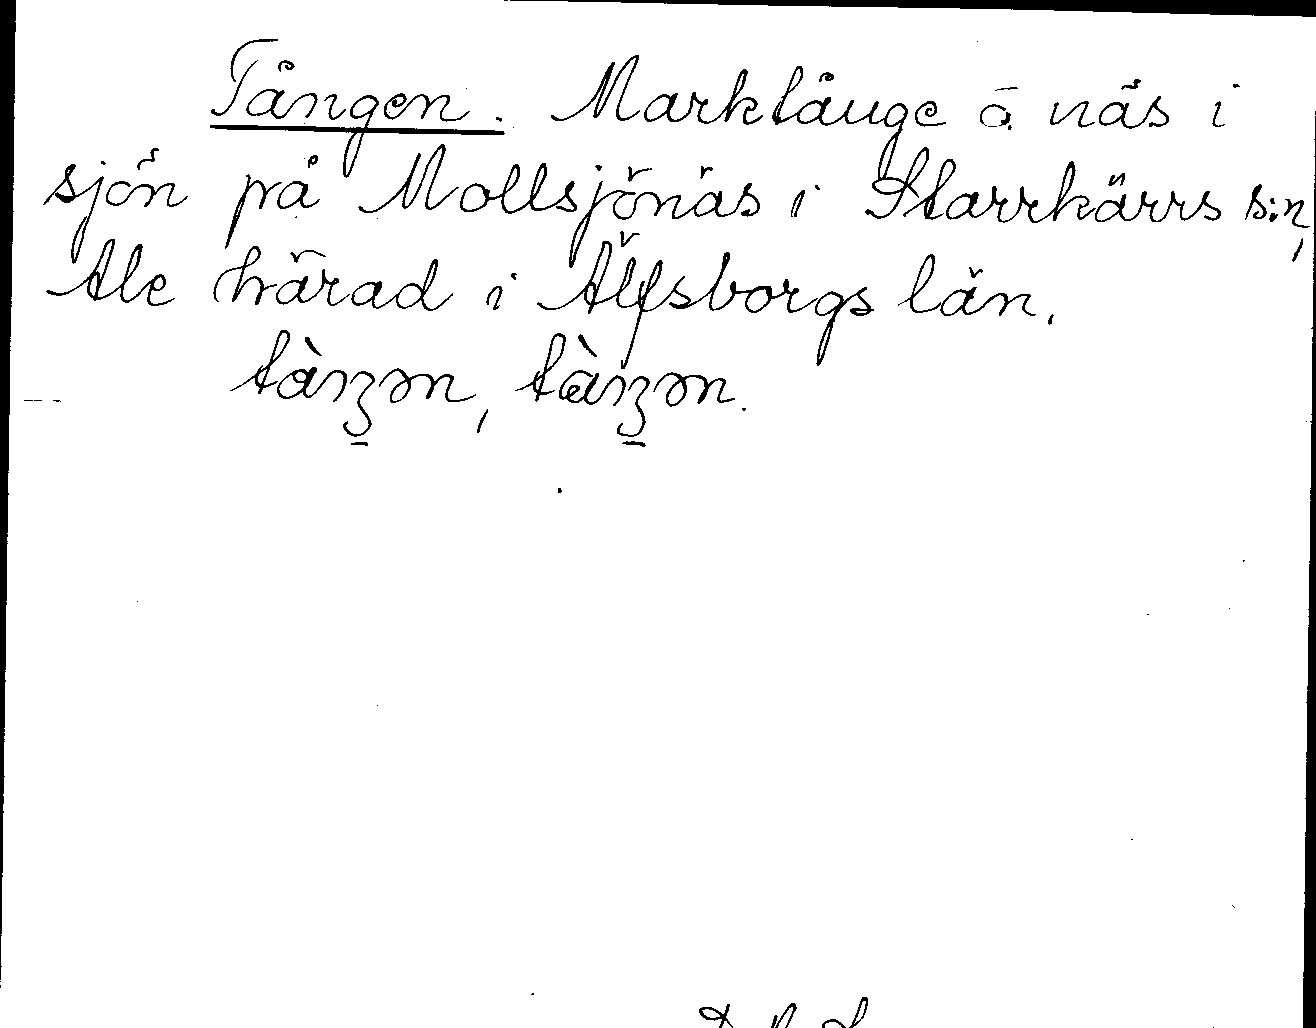 Tången. Marktånge å näs i
sjön på Mollsjönäs i Starrkärrs s:n,
Ale härad i Älfsborgs län.